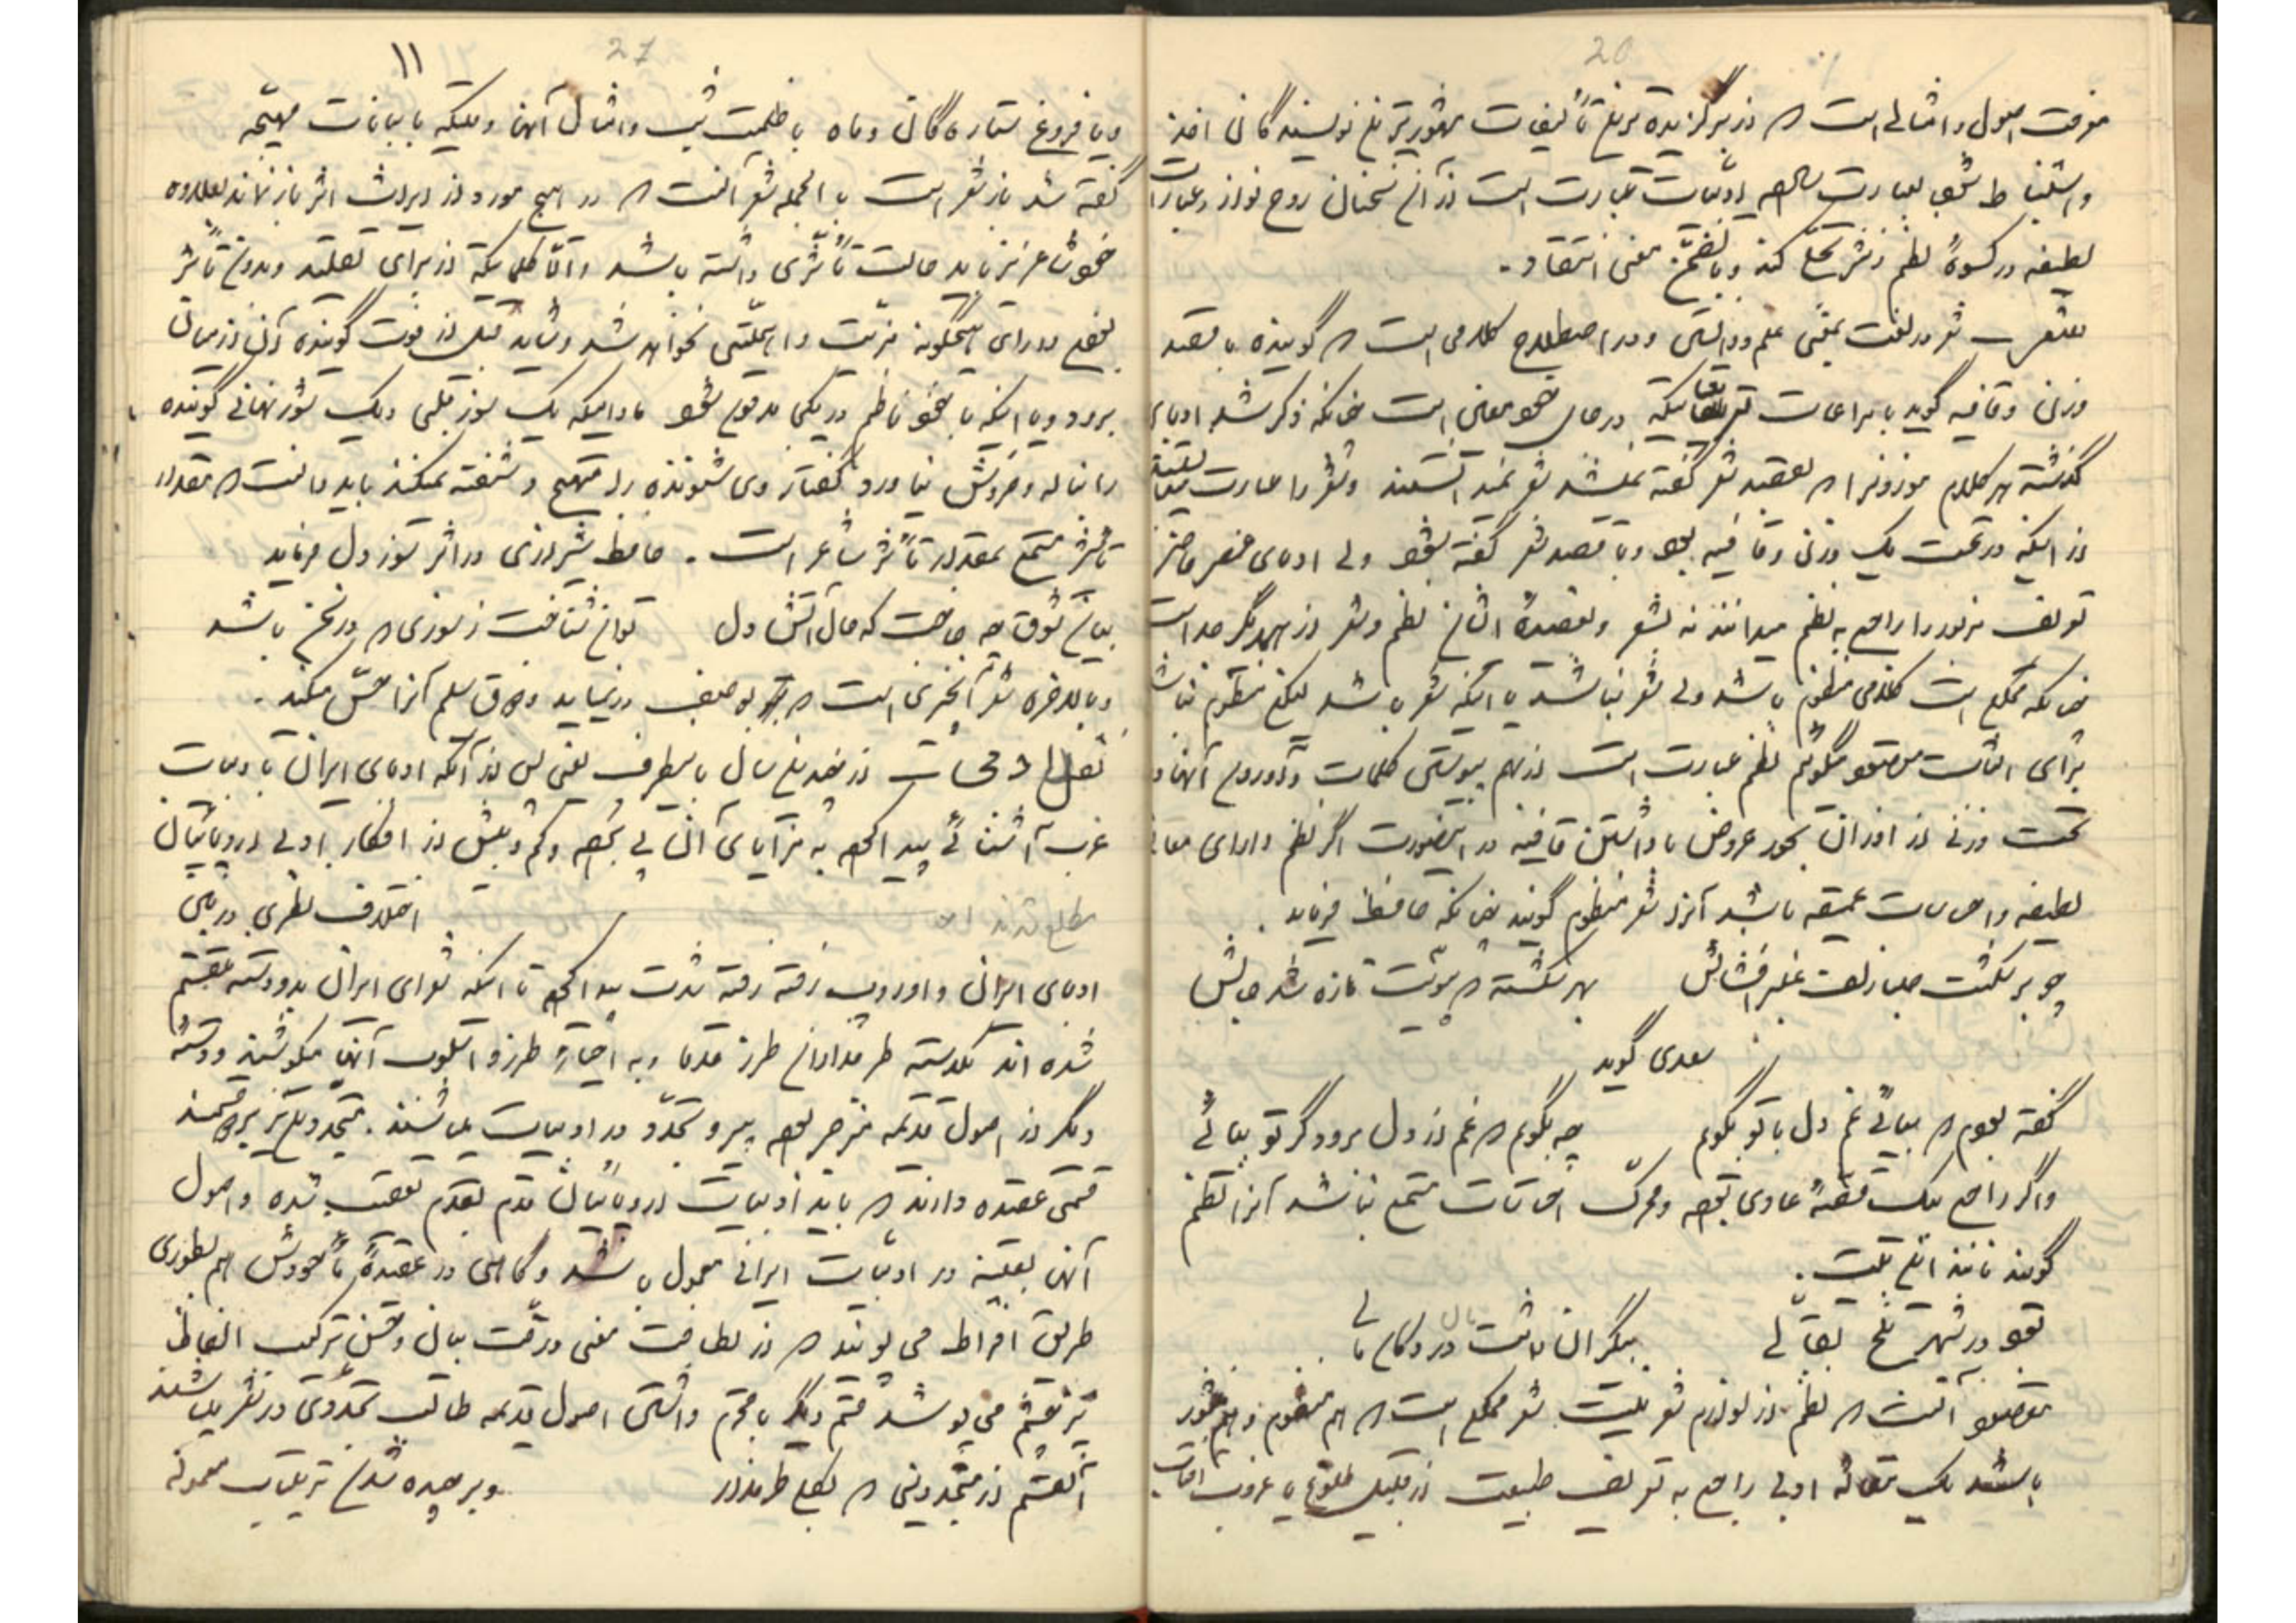 20
معرفت اصول و امثالی است که از برگزیده ترین تألیفات مشهورترین نویسندگان اخذ
و استنباط شود بعبارت ادبیات عبارت است از آن سخنان روح نواز و عبارات
لطیفه در کسوهٔ نظم و نثر تجلی کند و معنی انتقاد.
شعر ـ شعر در لغت بمعنی علم و دانستن و در اصطلاح کلامی است که گوینده با قصد
وزن و قافیه گوید با مراعات در حال معنی است چنانکه ذکر شد ادبای
گذشته هر کلام موزونرا که بقصد شعر گفته نمیشد شعر نمیدانستند و شعر را عبارت میدانند
از اینکه در تحت یک وزن و قافیه بوده و با قصد شعر گفته شود ولی ادبای عصر حاضر
تعریف مزبور را راجع به نظم میدانند نه بشعر و بعقیدهٔ ایشان نظم و شعر از همدیگر جداست
چنانکه ممکن است کلامی منظوم باشد ولی شعر نباشد یا اینکه شعر باشد لیکن منظوم نباشد
برای اثبات مقصود میگوئیم نظم عبارت است از بهم پیوستن کلمات و آوردن آنها در
تحت وزنی از اوزان بحور عروض با داشتن قافیه در اینصورت اگر نظم دارای معانی
لطیفه و احساسات عمیقه باشد آنرا شعر منظوم گویند چنانکه حافظ فرماید.
چو برشکست صبا زلف عنبرافشانش بهر شکسته که پیوست تازه شد جانش
سعدی گوید
گفته بودم که بیائی غم دل با تو بگویم چه بگویم که غم از دل برود گر تو بیائی
و اگر راجع بیک قضیهٔ عادی بوده و محرک احساسات مستمع نباشد آنرا نظم
گویند مانند این بیت.
بود در شهر بلخ بقالی بیکران داشت در دکان مالی
مقصود آنست که نظم از لوازم شعر نیست شعر ممکن است که هم منظوم و هم منثور
باشد یک مقاله ادبی راجع به تعریف طبیعت از قبیل طلوع یا غروب آفتاب
27
۱۱
و یا فروغ ستاره گان و ماه یا ظلمت شب و امثال آنها و بلکه با بیانات مهیجه
گفته شد باز شعر است بالجمله شعر آنست که در هیچ مورد از ایراث اثر باز نماند بعلاوه
خود شاعر نیز باید حالت تأثری داشته باشد و اما کلماتیکه از برای تقلید و بدون تأثر
بوده دارای هیچگونه مزیت و اهمیتی نخواهد شد و شاید قبل از فوت گوینده آن از میان
برود و یا اینکه با خود ناظم در یکی مدفون شود مادامیکه یک سوز قلبی و یک شور نهانی گوینده
را بناله و خروش نیاورد گفتار وی شنونده را مهیج و شیفته نمیکند باید دانست که مقدار
تأثیر مستمع بمقدار تأثر شاعر است. حافظ شیرازی در اثر سوز دل فرماید
بیان شوق چه حاجت که حال آتش دل توان شناخت ز سوزی که در سخن باشد
و بالاخره شعر آنچیزی است که به وصف در نیاید و ذوق سلیم آنرا حس میکند.
از چندین سال باینطرف یعنی پس از آنکه ادبای ایران با ادبیات
غرب آشنائی پیدا کرده به مزایای آن پی برده و کم و بیش از افکار ادبی اروپائیان
مطلع شدند اختلاف نظری در بین
ادبای ایران و اروپ رفته رفته شدت پیدا کرد تا اینکه شعرای ایران بدو دسته تقسیم
شده اند یکدسته طرفداران طرز قدما و به احیاء طرز و اسلوب آنها میکوشند و دستهٔ
دیگر از اصول قدیمه منزجر بوده پیرو تجدد در ادبیات میباشند. متجددین نیز بدو قسمند
قسمی عقیده دارند که باید ادبیات اروپائیان قدم بقدم تعقیب شده و اصول
آنها بعینه در ادبیات ایرانی معمول باشد و گاهی در عقیدهٔ خودشان هم بطوری
طریق افراط می پویند که از لطافت معنی و رقت بیان و حسن ترکیب الفاظ
نیز چشم می پوشند قسم دیگر با محترم داشتن اصول قدیمه طالب تجددی در شعر میباشند
آنقسم از متجددین که بکلی طرفدار و برچیده شدن ترتیبات معموله